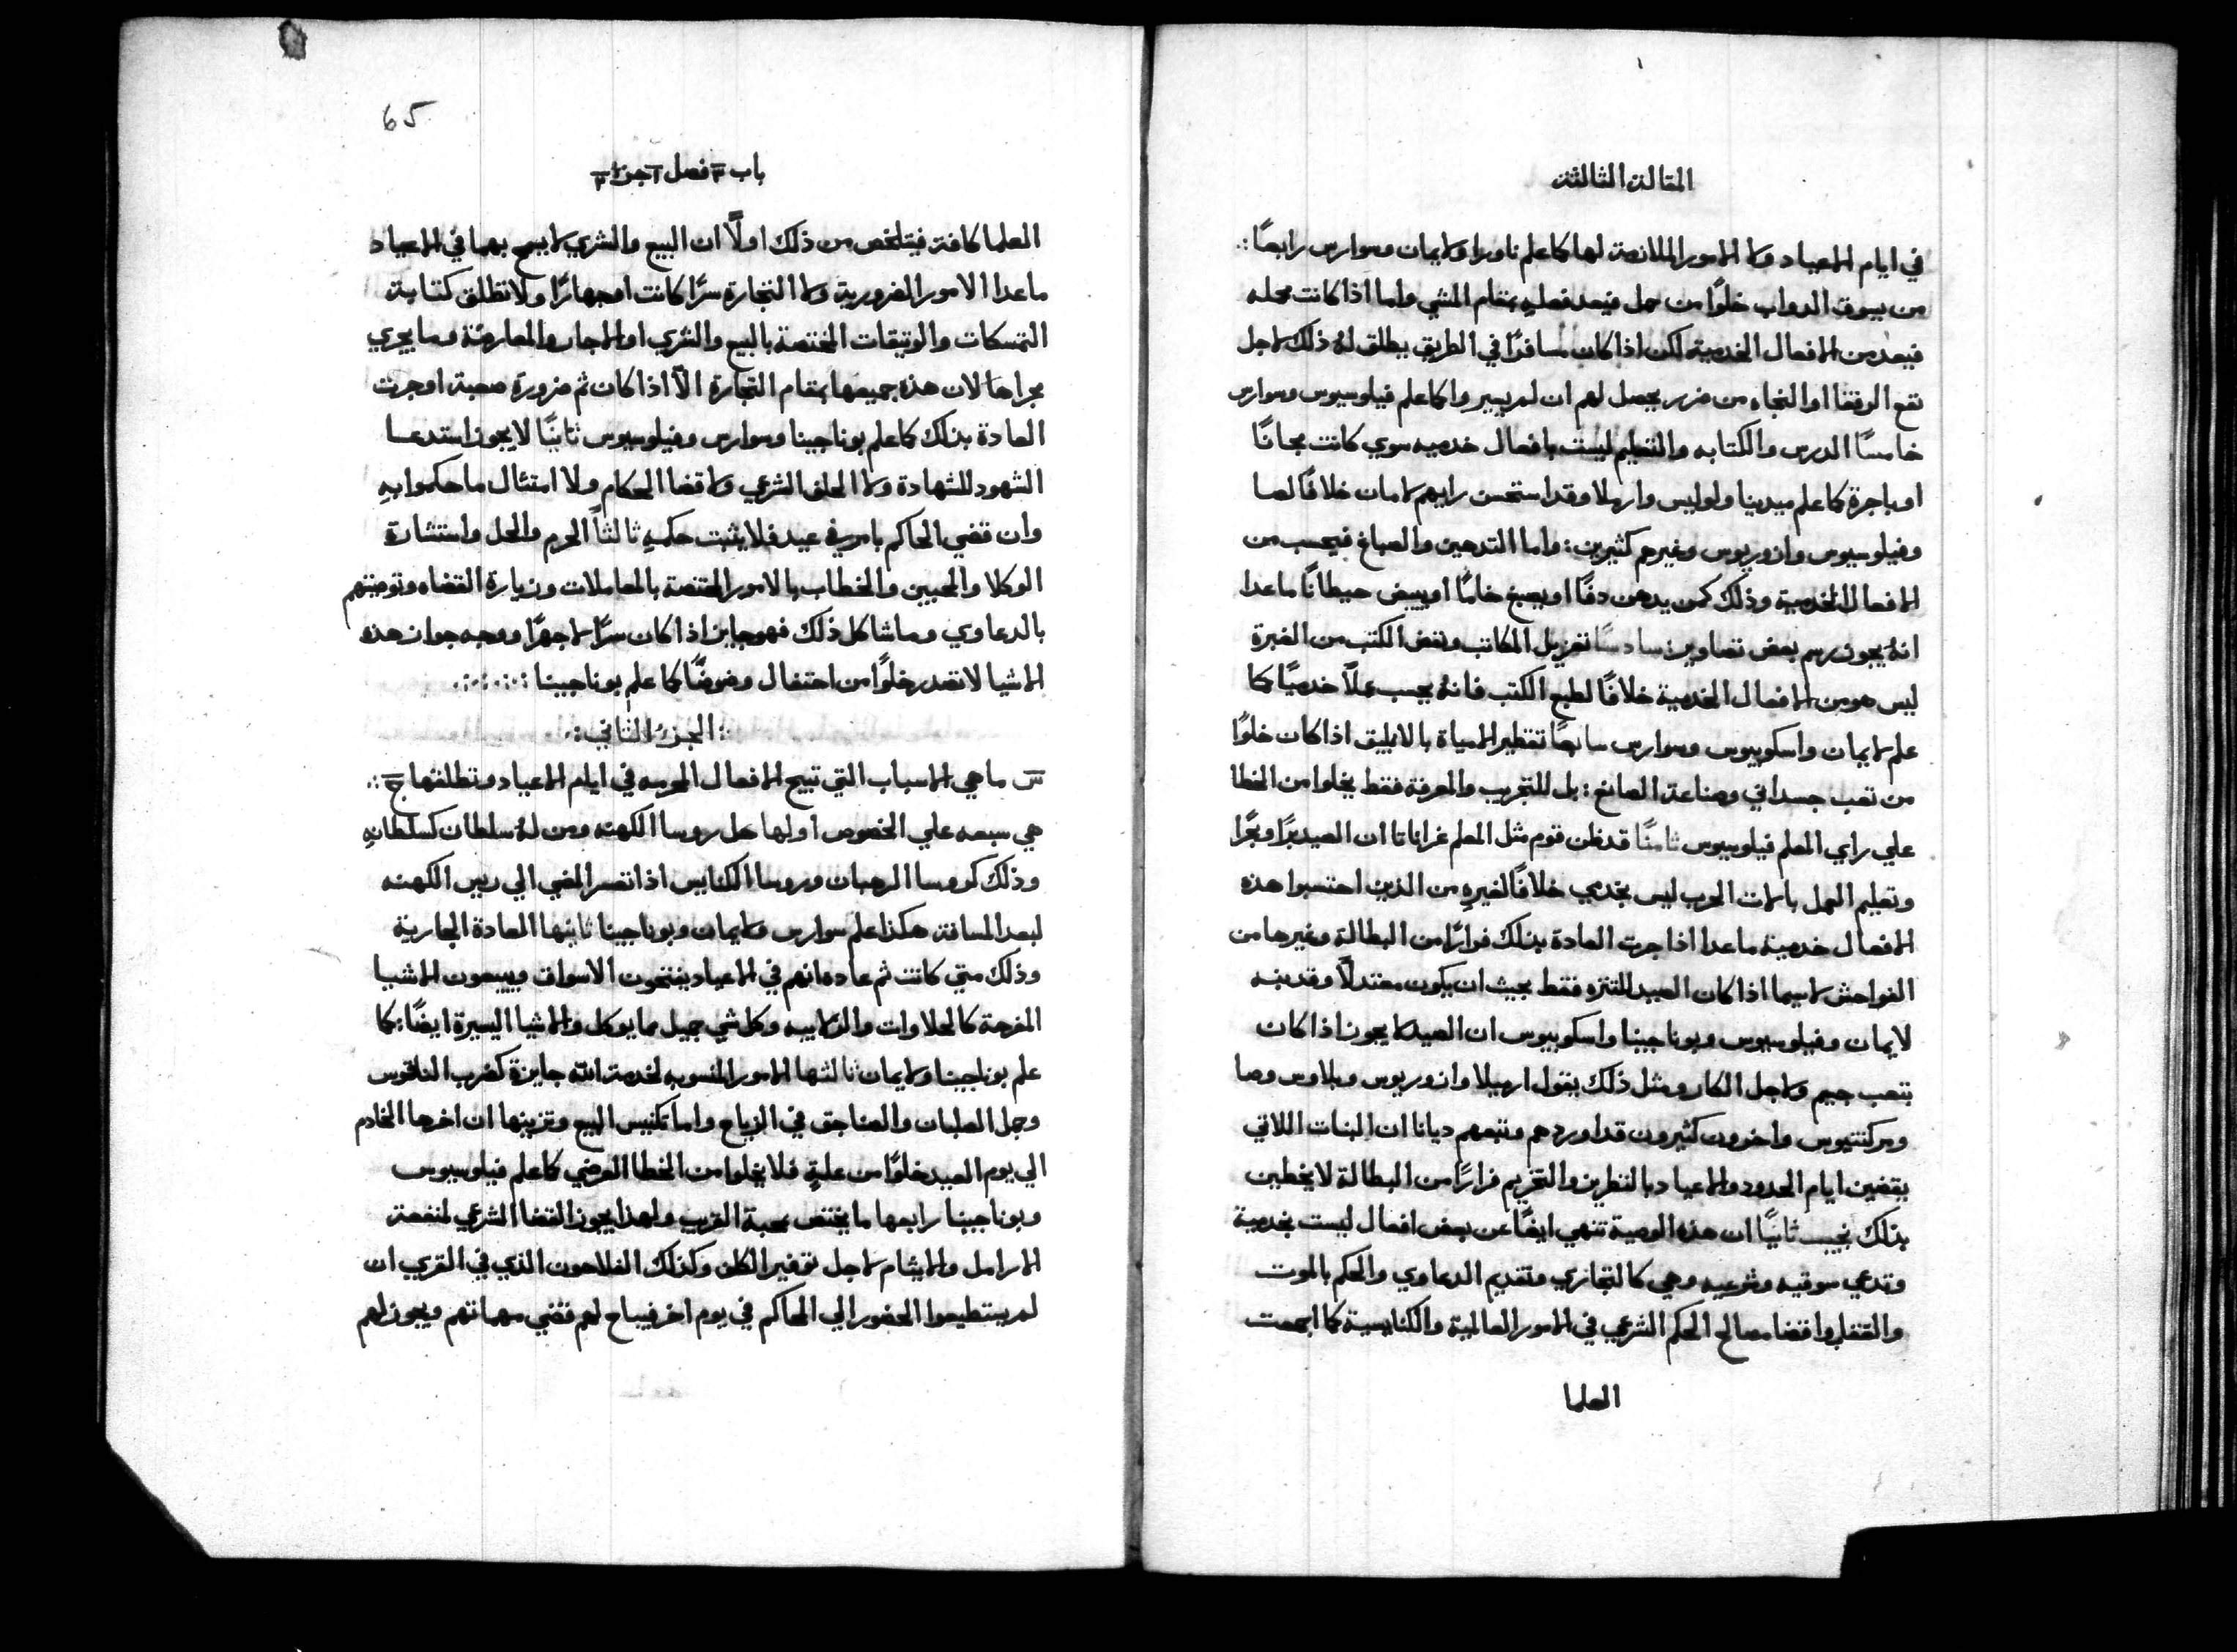 المقالة الثالثة
في ايام الاعياد ولا الامور الملازمة لها كما علم ناورا ولايمان وسوارس رابعًا
من يسوق الدواب خلوًا من حمل فيعد فعله بمقام المشي واما اذا كانت محمله
فيعد من الافعال الخدمية لكن اذا كان مسافرًا في الطريق يطلق له ذلك لاجل
نفع الرفقا او النجاه من ضرر يحصل لهم ان لم يسيروا كما علم فيلوسيوس وسوارس
خامسًا الدرس والكتابه والتعليم ليست بافعال خدميه سوي كانت مجانًا
او باجرة كما علم ميدينا ولوليس وارميلا وقد استحسن رايهم لامان خلافًا لصا
وفيلوسيوس وازوريوس وغيرهم كثيرين: واما التدهين والصباغ فيحسب من
الافعال الخدمية وذلك كمن يدهن دفًا او يصبغ خامًا او يبيض حيطانًا ما عدا
انه يجوز رسم بعض تصاوير: سادسًا تغزيل المكاتب ونفض الكتب من الغبرة
ليس هو من الافعال الخدمية خلافًا لطبع الكتب فانه يحسب عملاً خدميًا كما
علم لايمان واسكوبيوس وسوارس سابعًا تقطير المياة بالانبيق اذا كان خلوًا
من تعب جسداني وصناعة الصانغ: بل للتجريب والمعرفة فقط يخلوا من الخطا
علي راي المعلم فيلوسيوس ثامنًا قد ظن قوم مثل المعلم غراناتا ان الصيد برًا وبحرًا
وتعليم العمل بالات الحرب ليس بخدمي خلافًا لغيره من الذين احتسبوا هذه
الافعال خدمية ما عدا اذا جرت العادة بذلك فرارًا من البطالة وغيرها من
الفواحش لاسيما اذا كان الصيد للتنزه فقط بحيث ان يكون معتدلاً وقد نبه
لايمان وفيلوسيوس وبوناجينا واسكوبيوس ان الصيد لا يجوز اذا كان
بتعب جسيم ولاجل الكار ومثل ذلك يقول ارميلا وازوريوس وبلاوس وصا
ومركنتيوس واخرون كثيرون قد اوردهم وتبعهم ديانا ان البنات اللاتي
يقضين ايام الحدود والاعياد بالتطريز والتخريم فرارًا من البطالة لا يخطين
بذلك نجيب ثانيًا ان هذه الوصية تنهي ايضًا عن بعض افعال ليست بخدمية
وتدعي سوقيه وشرعيه وهي كالتجازي وتقديم الدعاوي والحكم بالموت
والقتل واقضا مصالح الحكم الشرعي في الامور العالمية والكنايسية كما اجمعت
العلما
65
باب ٣ فصل ٢ جزء ٢
العلما كافة فيتلخص من ذلك اولاً ان البيع والشري لا يسمح بهما في الاعياد
ما عدا الامور الضرورية ولا التجارة سرًا كانت ام جهارًا ولا تطلق كتابة
التمسكات والوثيقات المختصة بالبيع والشري او الايجار والمعارضة وما يجري
مجراها لان هذه جميعها بمقام التجارة الاّ اذا كان ثم ضرورة صعبة او جرت
العادة بذلك كما علم بوناجينا وسوارس وفيلوسيوس ثانيًا لا يجوز استدعا
الشهود للشهادة ولا الحلف الشرعي ولا قضا الحكام ولا امتثال ما حكموا به
وان قضي الحاكم بامر في عيد فلا يثبت حكمه ثالثًا الحرم والحل واستشارة
الوكلا والمحبين والخطاب بالامور المختصة بالمعاملات وزيارة القضاه وتوصيتهم
بالدعاوي وما شاكل ذلك فهو جايز اذا كان سرًا لا جهرًا ووجه جواز هذه
الاشيا لا تعد رخلوًا من احتفال وضوضًا كما علم بوناجينا
الجزء الثاني
س ما هي الاسباب التي تبيح الافعال المحرمه في ايام الاعياد وتطلقها ج
هي سبعه علي الخصوص اولها حل روسا الكهنه ومن له سلطان كسلطانه
وذلك كروسا الرهبان وروسا الكنايس اذا تعسر المضي الي ريس الكهنه
لبعد المسافة هكذا علم سوارس ولايمان وبوناجينا ثانيها العادة الجارية
وذلك متي كانت ثم عاده انهم في الاعياد يفتحون الاسواق ويبيعون الاشيا
المفرحة كالحلاوات والزلابيه وكل شي جميل مما يوكل والاشيا اليسيرة ايضًا: كما
علم بوناجينا ولايمان ثالثها الامور المنسوبه لخدمة الله جايزة كضرب الناقوس
وحمل الصلبان والصناجق في الزياح واما تكنيس البيع وتزيينها ان اخرها الخادم
الي يوم العيد خلوًا من علةٍ فلا يخلوا من الخطا العرضي كما علم فيلوسيوس
وبوناجينا رابعها ما يختص بمحبة القريب ولهذا يجوز القضا الشرعي لمنفعة
الارامل والايتام لاجل توفير الكلف وكذلك الفلاحون الذي في القري ان
لم يستطيعوا الحضور الي الحاكم في يوم اخر فيباح لهم فتقضي مهماتهم ويجوز لهم